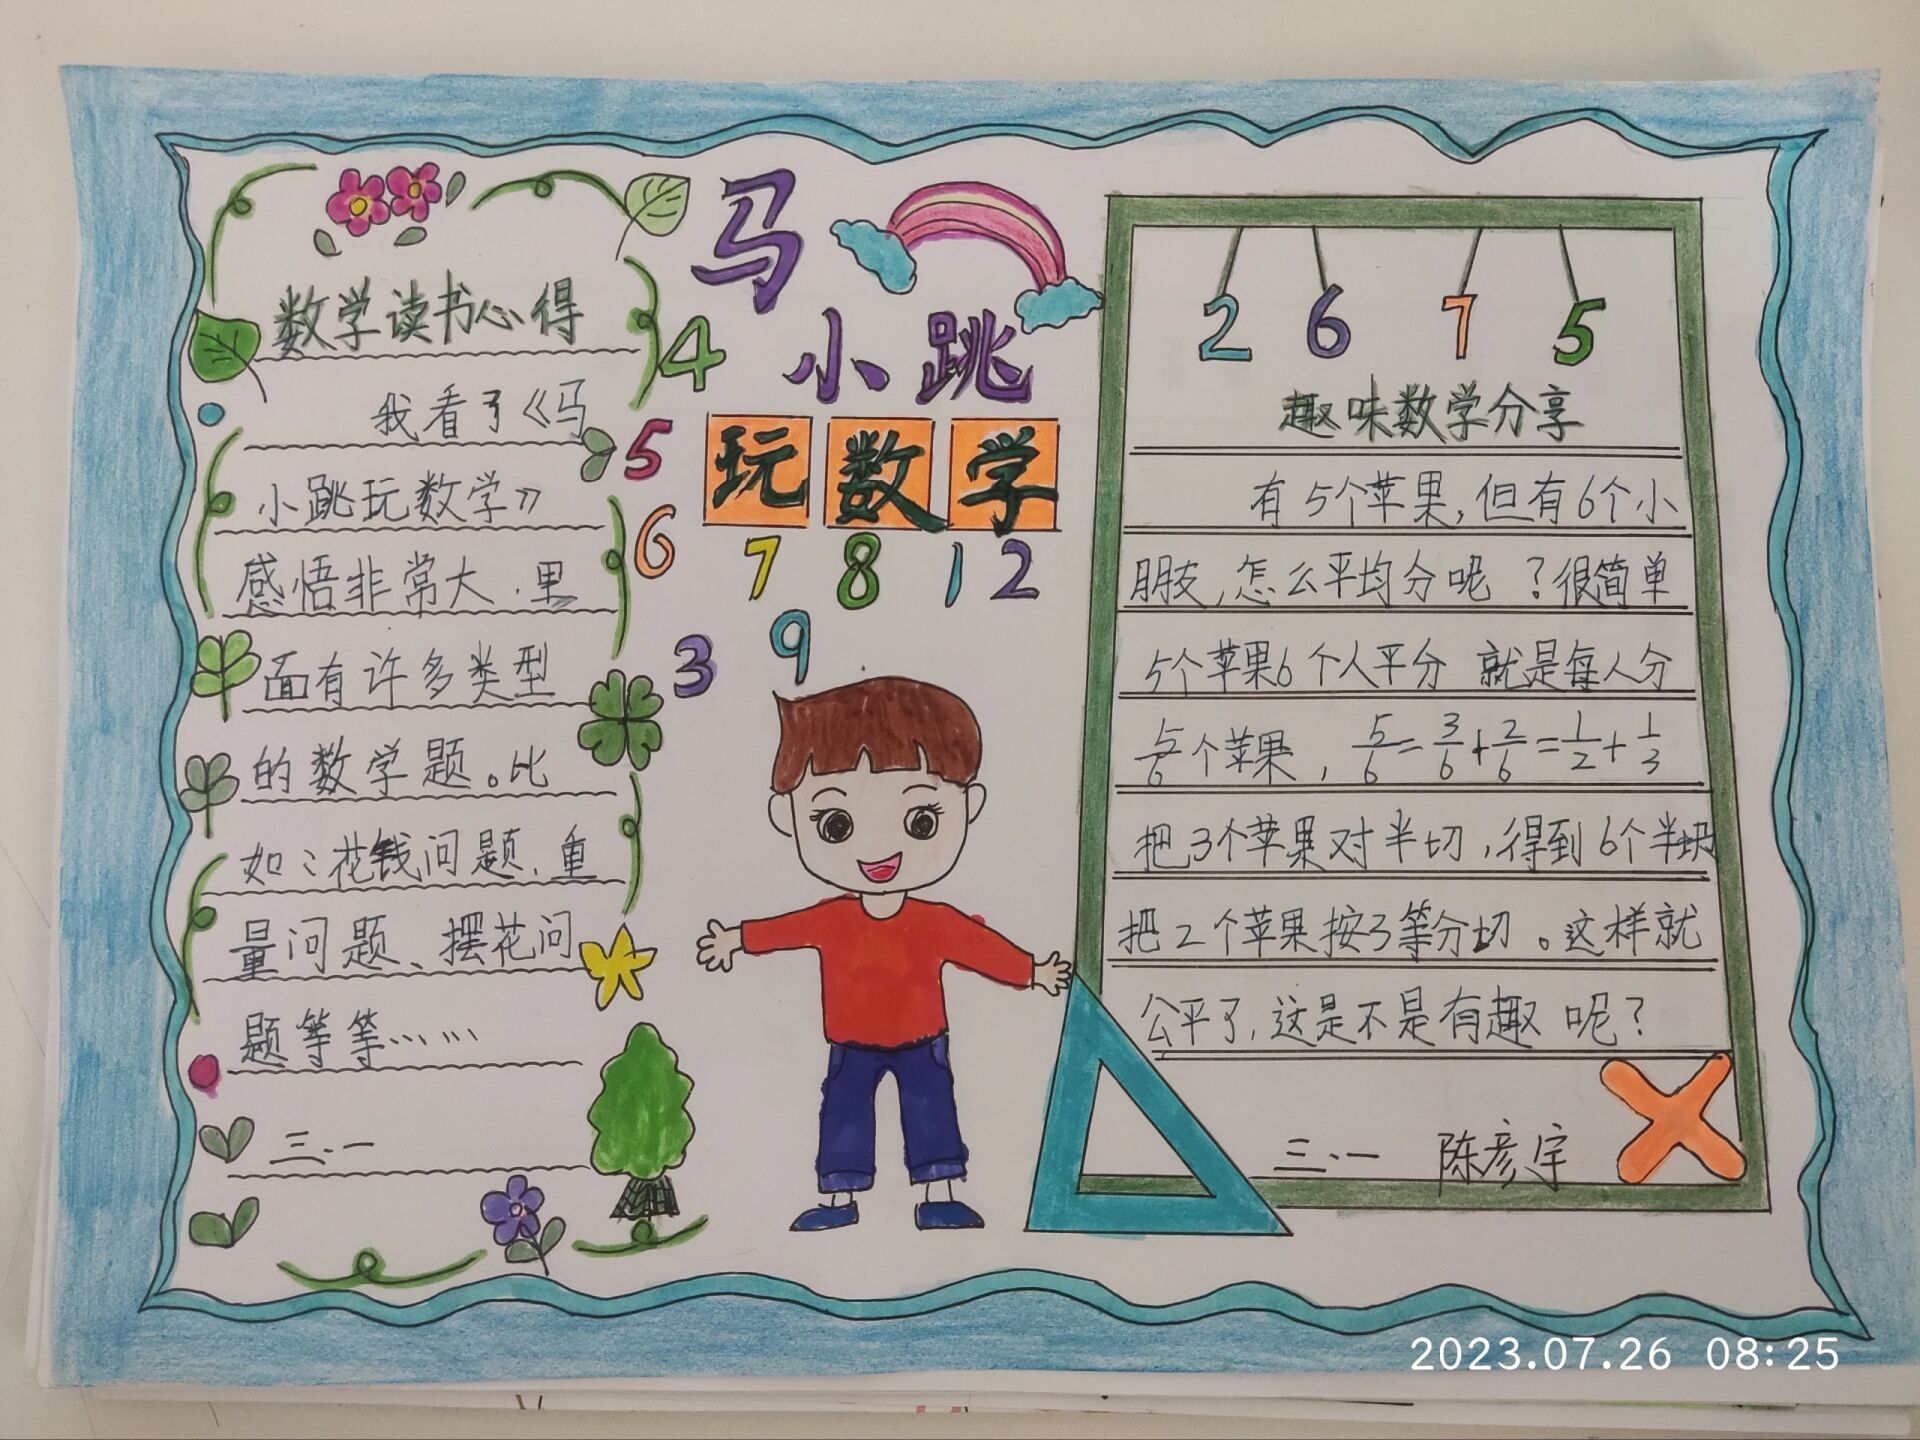 数学读书心得
我看了《马
小跳玩数学》
感悟非常大.里
面有许多类型
的数学题。比
如:花钱问题、重
量问题、摆花问
题等等……
三.一
马
小跳
玩数学
4
5
6
7 8 1 2
3
9
2 6 7 5
趣味数学分享
有5个苹果,但有6个小
朋友,怎么平均分呢?很简单
5个苹果6个人平分 就是每人分
5/6个苹果, 5/6=3/6+2/6=1/2+1/3
把3个苹果对半切,得到6个半块
把2个苹果按3等分切。这样就
公平了,这是不是有趣呢?
三.一 陈彦宇
2023.07.26 08:25